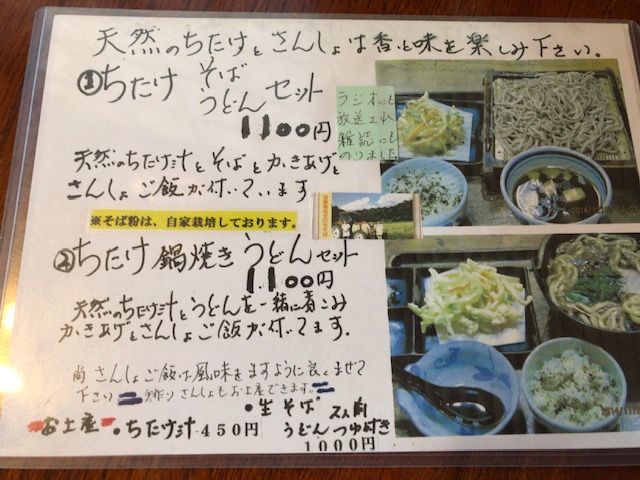 天然のちたけとさんしょは香と味を楽しみ下さい。
①ちたけ そば
うどん セット
1100円
ラジオにも
放送され
雑誌にも
のりました
天然のちたけ汁とそばとかきあげと
さんしょご飯が付いています
※そば粉は、自家栽培しております。
②ちたけ鍋焼きうどんセット
1100円
天然のちたけ汁とうどんを一緒に煮こみ
かきあげとさんしょご飯が付いてます.
尚さんしょご飯は風味をますように良くまぜて
下さい さんしょもお土産できます。
お土産 ・ちたけ汁 450円
・生そば 2人前
うどん つゆ付き
1000円